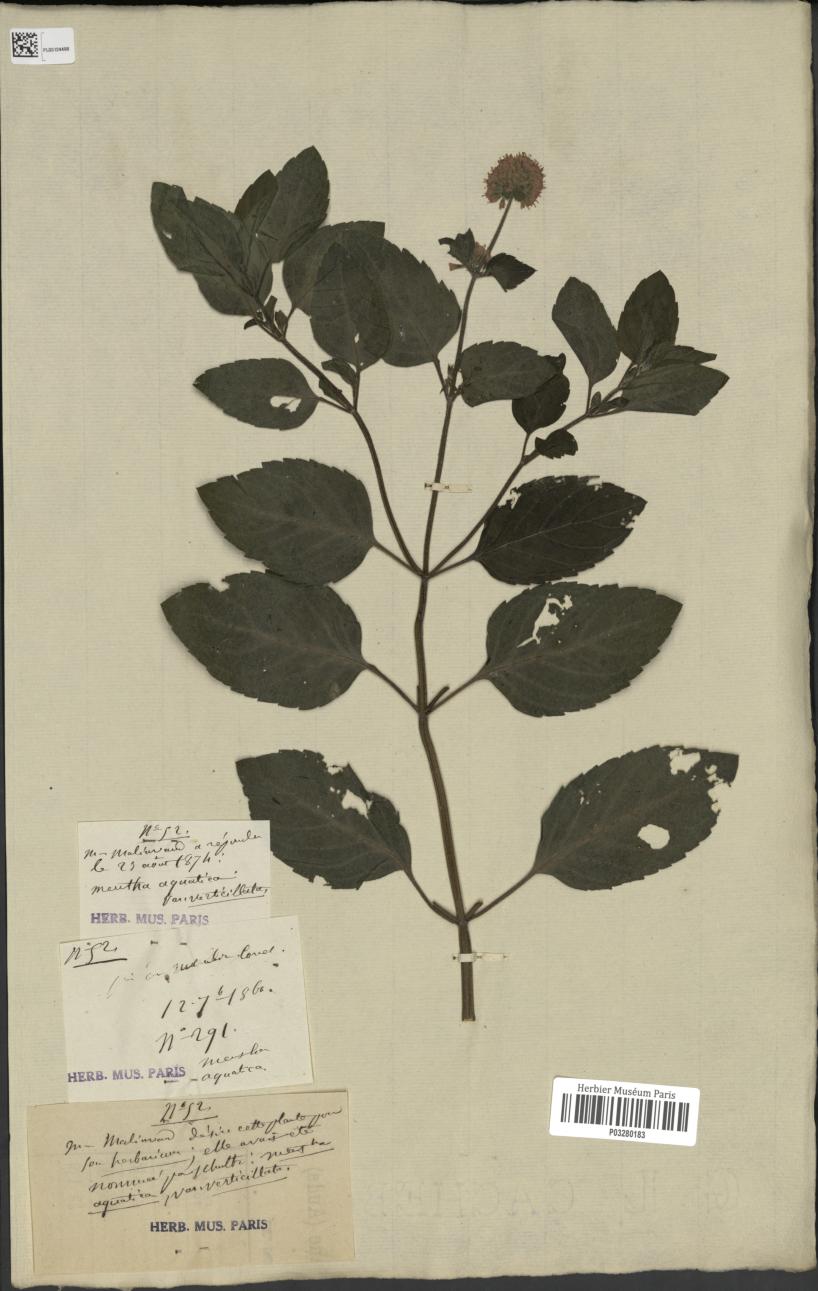 PL00124498
N° 52.
mr Malinvaud a répondu
le 23 août 1874:
mentha aquatica
var. verticillata.
HERB. MUS. PARIS
N° 52.
12 7b 1860.
N° 291.
mentha
aquatica.
HERB. MUS. PARIS
N° 52.
mr Malinvaud désire cette plante pour
son herbarium; elle avait été
nommé par schultz: mentha
aquatica var. verticillata.
HERB. MUS. PARIS
Herbier Muséum Paris
P03280183